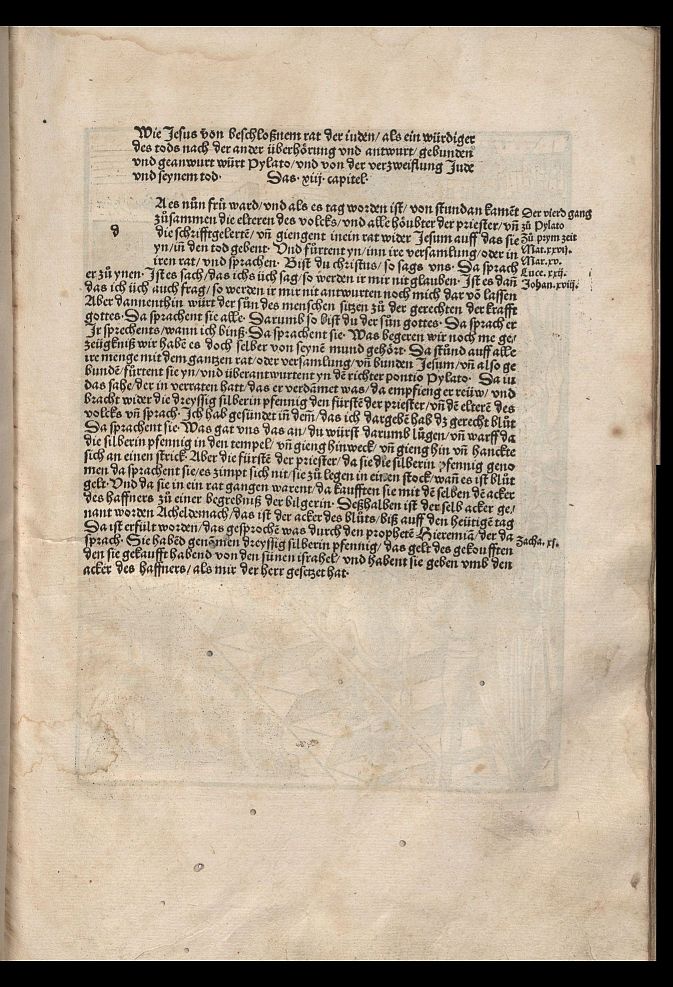 Wie Jesus von beschloßnem rat der iuden/ als ein würdiger
des tods nach der ander überhörung vnd antwurt/ gebunden
vnd geanwurt würt Pylato/ vnd von der verzweiflung Jude
vnd seynem tod. Das. xiij. capitel.
d
A es nůn frü ward/ vnd als es tag worden ist/ von stundan kamēt
zůsammen die elteren des volcks/ vnd alle höubter der priester/ vn̄
die schrifftgelertē/ vn̄ giengent in ein rat wider Jesum auff das sie
yn/ in̄ den tod gebent. Vnd fürtent yn/ inn ire versamlung/ oder in
iren rat/ vnd sprachen. Bist du christus/ so sags vns. Da sprach
er zů ynen. Ist es sach/ das ichs üch sag/ so werden ir mir nit glauben. Ist es dan̄
das ich üch auch frag/ so werden ir mir nit antwurten noch mich dar vō lassen
Aber dannenthin würt der sůn des menschen sitzen zů der gerechten der krafft
gottes. Da sprachent sie alle. Darumb so bist du der sůn gottes. Da sprach er
Jr sprechents/ wann ich binß. Da sprachent sie. Was begeren wir noch me ge/
zeügkniß wir habē es doch selber von seynē mund gehört. Da stůnd auff alle
ire menge mit dem gantzen rat/ oder versamlung/ vn̄ bunden Jesum/ vn̄ also ge
bundē/ fürtent sie yn/ vnd überantwurtent yn dē richter pontio Pylato. Da iu
das sahe/ der in verraten hatt/ das er verdāmet was/ da empfieng er reüw/ vnd
bracht wider die dreyssig silberin pfennig den fürstē der priester/ vn̄ dē elterē des
volcks vn̄ sprach. Ich hab gesündet in̄ dem/ das ich dargebē hab dz gerecht blůt
Da sprachent sie. Was gat vns das an/ du würst darumb lůgen/ vn̄ warff da
die silberin pfennig in den tempel/ vn̄ gieng hinweck/ vn̄ gieng hin vn̄ hanckte
sich an einen strick. Aber die fürstē der priester/ da sie die silberin pfennig geno
men da sprachent sie/ es zimpt sich nit/ sie zů legen in einen stock/ wan̄ es ist blůt
gelt. Vnd da sie in ein rat gangen warent/ da kaufften sie mit dē selben dē acker
des haffners zů einer begrebniß der bilgerin. Deßhalben ist der selb acker ge/
nant worden Acheldemach/ das ist der acker des blůts/ biß auff den heütigē tag
Da ist erfült worden/ das gesprochē was durch den prophetē Hieremiā/ der da
sprach. Sie habēd genōmen dreyssig silberin pfennig/ das gelt des gekoufften
den sie gekaufft habend von den sünen israhel/ vnd habent sie geben vmb den
acker des haffners/ als mir der herr gesetzet hat.
Der vierd gang
zů Pylato
Zů prym zeit
Mat. xxvij.
Mar. xv.
Luce. xxij.
Johan. xviij.
Zacha. xi.